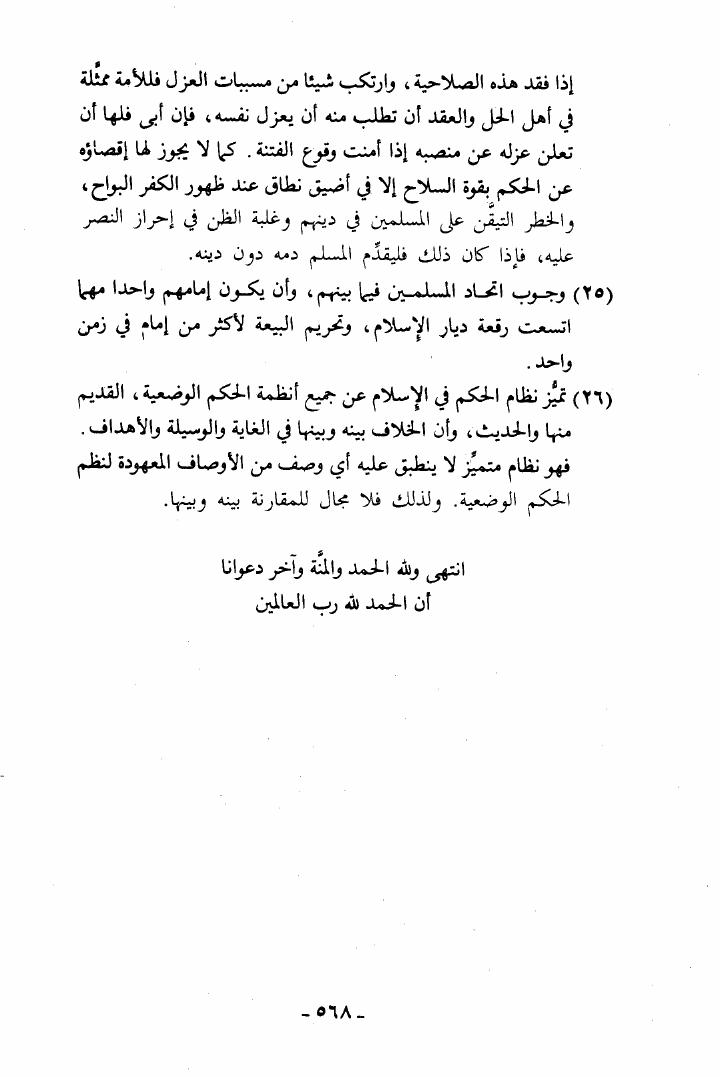 إذا فقد هذه الصلاحية، وارتكب شيئا من مسببات العزل فللأمة ممثَّلة
في أهل الحل والعقد أن تطلب منه أن يعزل نفسه، فإن أبى فلها أن
تعلن عزله عن منصبه إذا أمنت وقوع الفتنة. كما لا يجوز لها إقصاؤه
عن الحكم بقوة السلاح إلا في أضيق نطاق عند ظهور الكفر البواح،
والخطر التيقَّن على المسلمين في دينهم وغلبة الظن في إحراز النصر
عليه، فإذا كان ذلك فليقدِّم المسلم دمه دون دينه.
(٢٥) وجوب اتحاد المسلمين فيما بينهم، وأن يكون إمامهم واحدا مهما
اتسعت رقعة ديار الإسلام، وتحريم البيعة لأكثر من إمام في زمن
واحد.
(٢٦) تميُّز نظام الحكم في الإسلام عن جميع أنظمة الحكم الوضعية، القديم
منها والحديث، وأن الخلاف بينه وبينها في الغاية والوسيلة والأهداف.
فهو نظام متميِّز لا ينطبق عليه أي وصف من الأوصاف المعهودة لنظم
الحكم الوضعية. ولذلك فلا مجال للمقارنة بينه وبينها.
انتهى ولله الحمد والمنَّة وآخر دعوانا
أن الحمد لله رب العالمين
ـ ٥٦٨ ـ